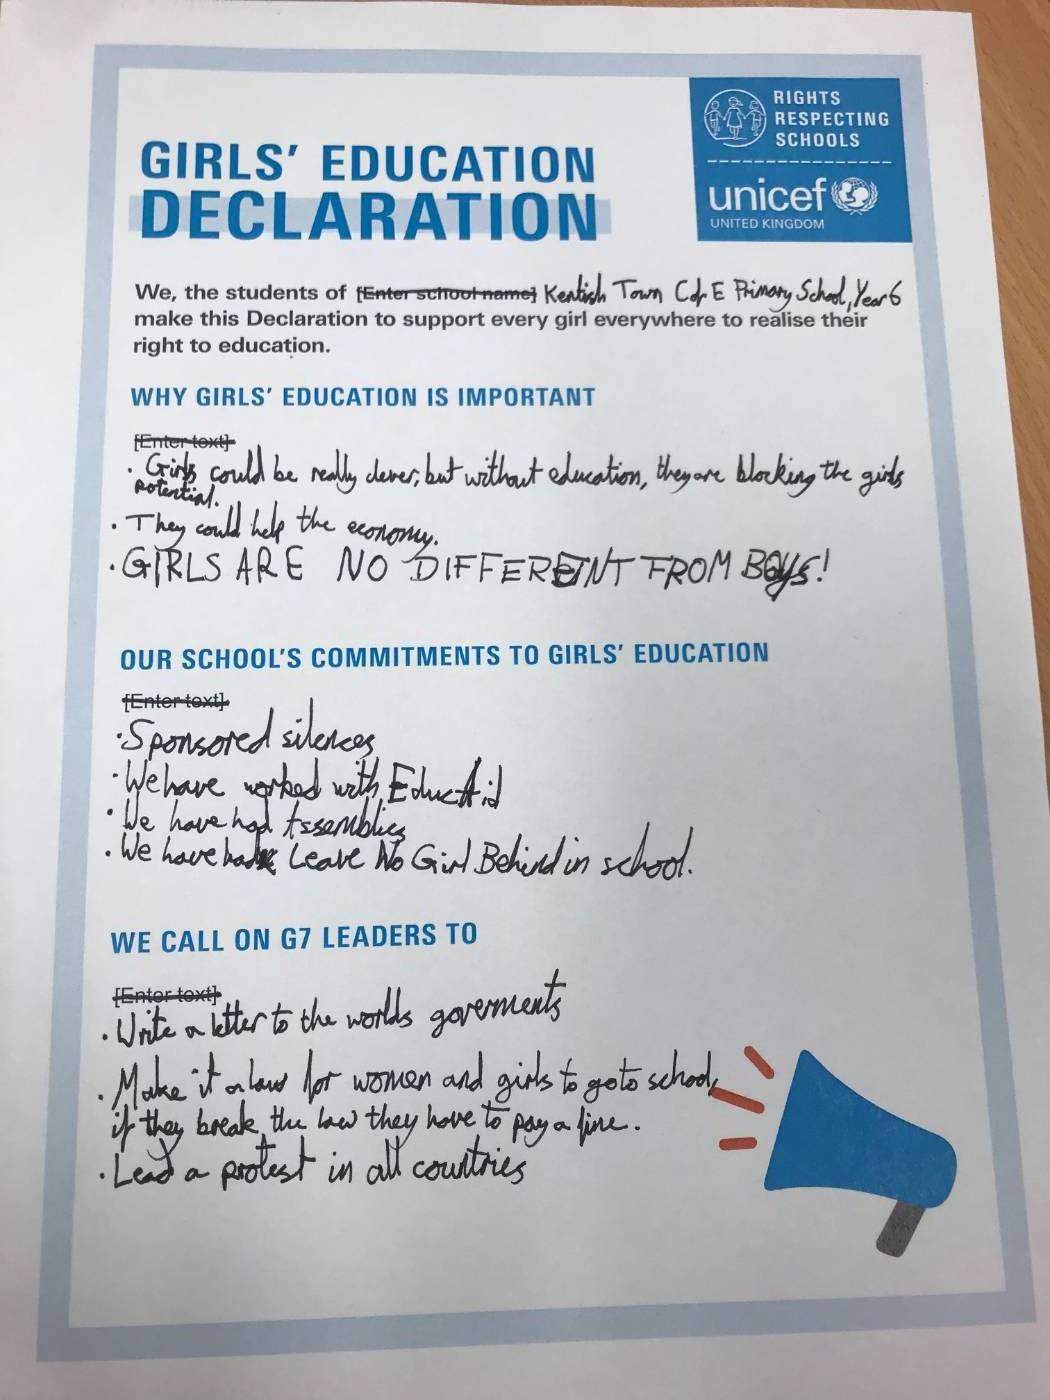 RIGHTS
RESPECTING
SCHOOLS
unicef
UNITED KINGDOM
GIRLS' EDUCATION
DECLARATION
We, the students of [Enter school name] Kentish Town CofE Primary School, Year 6
make this Declaration to support every girl everywhere to realise their
right to education.
WHY GIRLS' EDUCATION IS IMPORTANT
[Enter text]
· Girls could be really clever, but without education, they are blocking the girls
potential.
· They could help the economy.
· GIRLS ARE NO DIFFERENT FROM BOYS!
OUR SCHOOL'S COMMITMENTS TO GIRLS' EDUCATION
[Enter text]
· Sponsored silences
· We have worked with EducAid
· We have had Assemblies
· We have had Leave No Girl Behind in school.
WE CALL ON G7 LEADERS TO
[Enter text]
· Write a letter to the worlds goverments
· Make it a law for women and girls to go to school,
if they break the law they have to pay a fine.
· Lead a protest in all countries